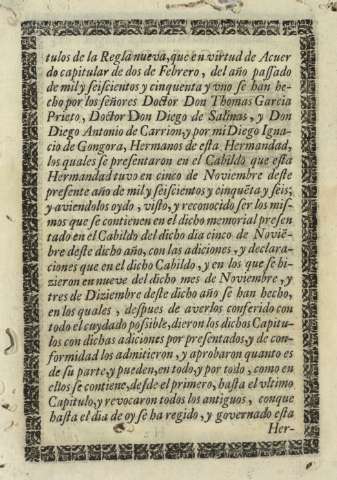 tulos de la Regla nueva, que en virtud de Acuer
do capitular de dos de Febrero, del año passado
de mil y seiscientos y cinquenta y vno se han he-
cho por los señores Doctor Don Thomas Garcia
Prieto, Doctor Don Diego de Salinas, y Don
Diego Antonio de Carrion, y por mi Diego Igna-
cio de Gongora, Hermanos de esta Hermandad,
los quales se presentaron en el Cabildo que esta
Hermandad tuvo en cinco de Noviembre deste
presente año de mil y seiscientos y cinquẽta y seis,
y aviendolos oydo, visto, y reconocido ser los mis-
mos que se contienen en el dicho memorial presen
tado en el Cabildo del dicho dia cinco de Noviẽ-
bre deste dicho año, con las adiciones, y declara-
ciones que en el dicho Cabildo, y en los que se hi-
zieron en nueve del dicho mes de Noviembre, y
tres de Diziembre deste dicho año se han hecho,
en los quales, despues de averlos conferido con
todo el cuydado possible, dieron los dichos Capitu-
los con dichas adiciones por presentados, y de con-
formidad los admitieron, y aprobaron quanto es
de su parte, y pueden, en todo, y por todo, como en
ellos se contiene, desde el primero, hasta el vltimo
Capitulo, y revocaron todos los antiguos, conque
hasta el dia de oy se ha regido, y governado esta
Her-